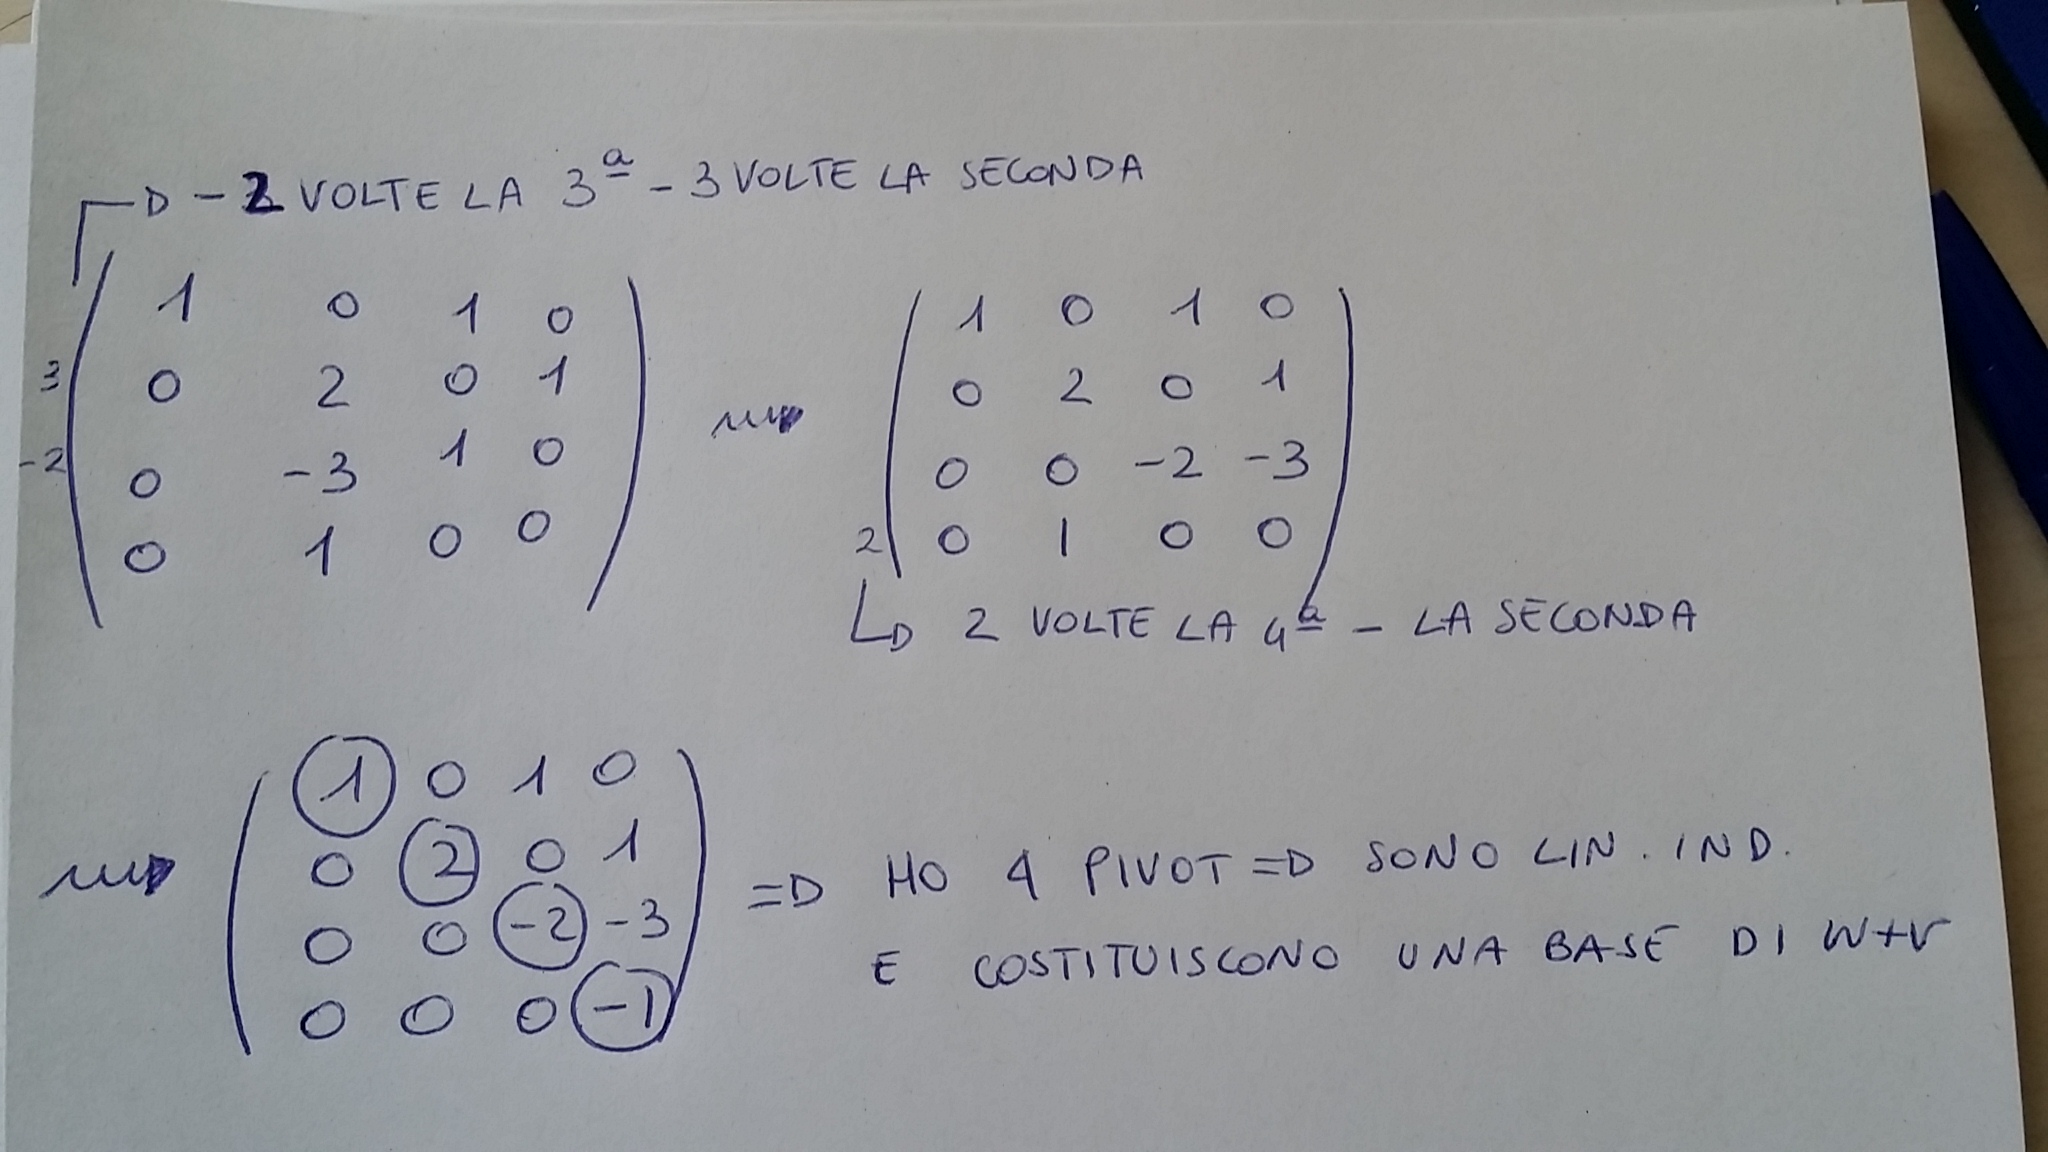 -D - 2 VOLTE LA 3ª - 3 VOLTE LA SECONDA
1 0 1 0
3 0 2 0 1
-2 0 -3 1 0
0 1 0 0
1 0 1 0
0 2 0 1
0 0 -2 -3
2 0 1 0 0
D 2 VOLTE LA 4ª - LA SECONDA
1 0 1 0
0 2 0 1
0 0 -2 -3
0 0 0 -1
=D HO 4 PIVOT =D SONO LIN. IND.
E COSTITUISCONO UNA BASE DI W+V